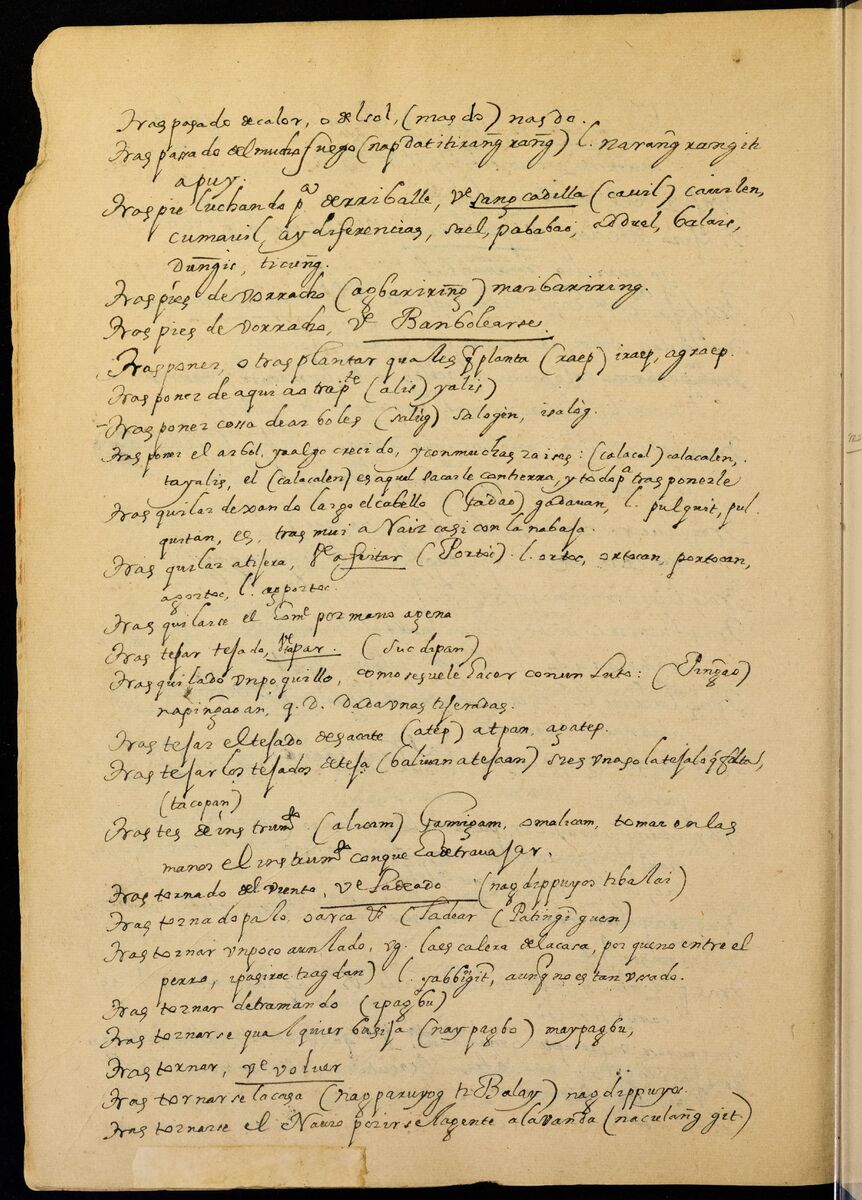 tras pasado de calor, o del sol, (masdo) nasdo.
tras pasado del mucho fuego (napdatitirañg rañg) l. narañg rañg iti
apuy.
tras pie luchando pª derriballe, vᵉ sancadilla (cauil) cauilen,
cumauil, ay diferencias, sael, pababao, balais,
Dungic, ticung.
tras pies de vorracho (agbariring̃) maibariring.
tras pies de vorracho, vᵉ Banbolearse.
tras poner, o tras plantar qualesqᵉ planta (raep) iraep, agraep.
tras poner de aqui ao trapᵗᵉ (alis) yalis)
tras poner cossa de arboles (salúg) salogin, isalóg.
tras poner el arbol, yaalgo crecido, y con muchas raises: (calacal) calacalen,
tayalis, el (calacalen) es aquel sacarle con tierra, y todo pª trasponerle
tras quilar dexando largo el cabello (gadao) gadauan, l. pulquit, pul
quitan, es, tras mui a Naiz casi con la nabaja.
tras quilar a tisera, vᵉ afeitar (Portoc). l. ortoc, ortocan, portocan,
agortoc, l. agportoc.
tras quilarse el homᵉ por mano agena
tras tejar tejado, vᵉ tapar. (sucdipan)
tras quilado vn poquillo, como se suele hacer con un luto: (Pingao)
napingaoan, q. D. Dada vnas tiseradas.
tras tejar el tejado de sacate (atep) atpan, agatep.
tras tejar los tejados de teja (baliuan a tejaan) si es vna sola teja la qᵉ falta,
(tacopan)
tras tes de instrumᵗᵒ (alicam) gamigam, omalicam, tomar en las
manos el instrumᵗᵒ con que ha de travajar.
tras tornado del viento, vᵉ Ladeado (nagdippuyos ti balai)
tras tornado palo, o arca vᵉ (Ladear (Patingiguen)
tras tornar vn poco a un lado, vg. la escalera de la casa, por que no entre el
perro, ipasiroc ti agdan) l. sabbingit, aunqᵉ no es tan vsado.
tras tornar derramando (ipagbu)
tras tornarse qualquier basija (naypagbo) maypagbu,
tras tornar, vᵉ volver
tras tornarse la casa (nagparuyog ti Balay) nagdippuyos.
tras tornarse el Navio por irse la gente a la vanda (naculañg git)